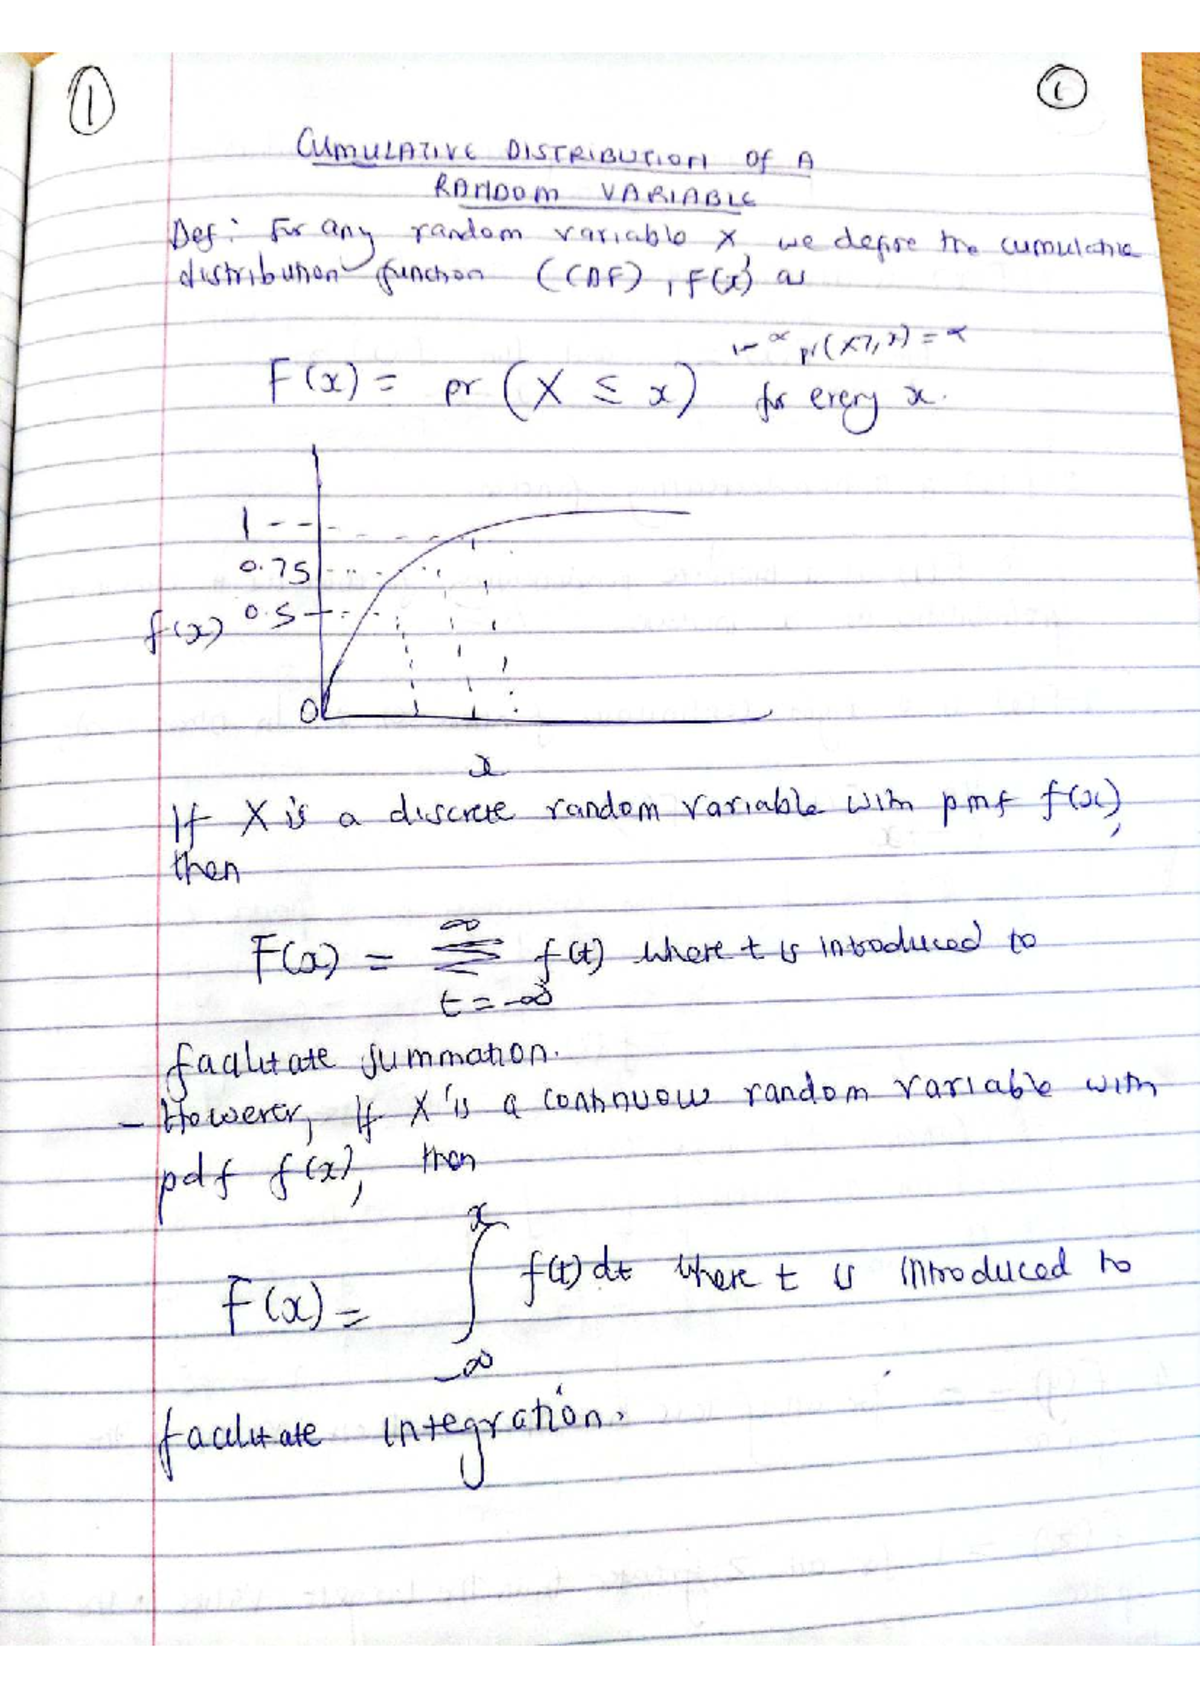 1
CUMULATIVE DISTRIBUTION OF A
RANDOM VARIABLE
Def: For any random variable X, we define the cumulative
distribution function (CDF), F(x) as
1-α pr(X>,x) = α
F(x) = pr (X ≤ x) for every x.
1
0.75
f(x) 0.5
0
x
If X is a discrete random variable with pmf f(x),
then
F(x) = ∞ Σ t=-∞ f(t) where t is introduced to
facilitate summation.
- However, if X is a continuous random variable with
pdf f(x), then
F(x) = ∫ x -∞ f(t) dt where t is introduced to
facilitate integration.